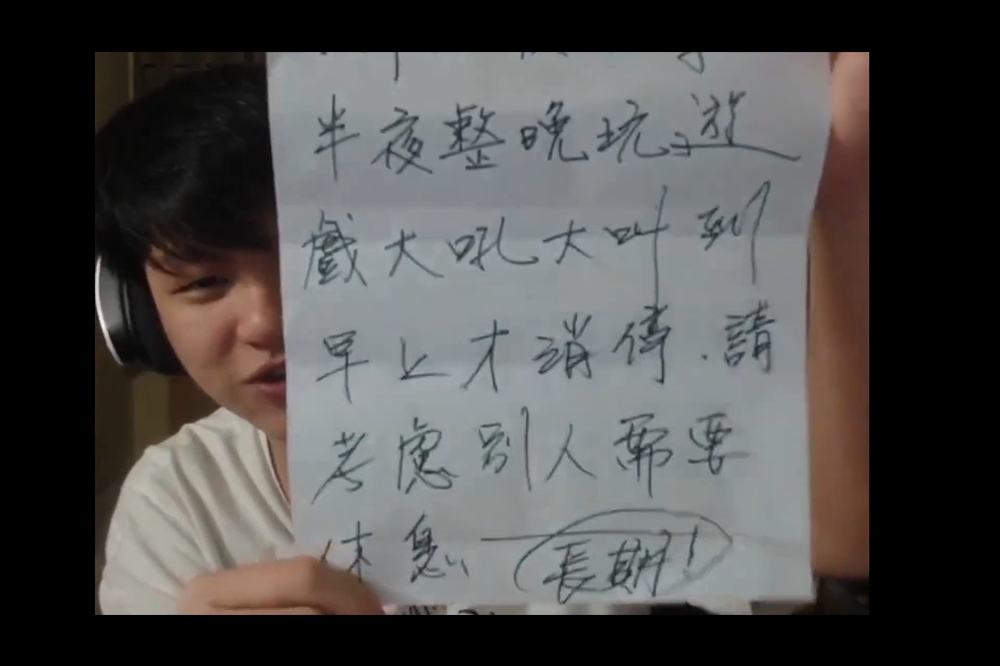 半夜整晚玩遊
戲大吼大叫到
早上才消停.請
考慮別人需要
休息 — 長期!